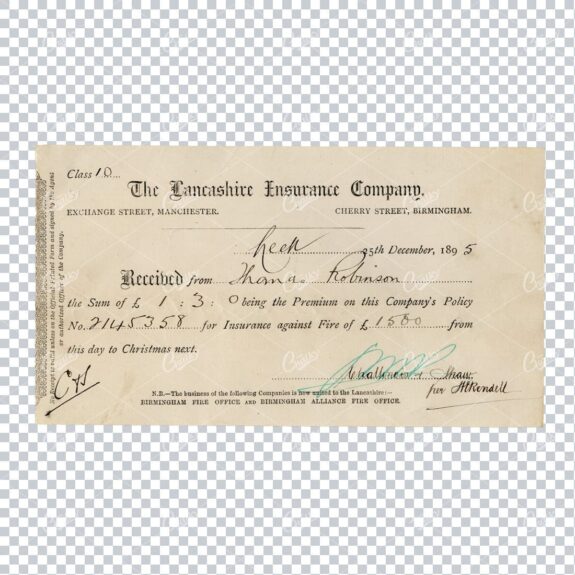 Class 10
The Lancashire Insurance Company,
EXCHANGE STREET, MANCHESTER. CHERRY STREET, BIRMINGHAM.
Leek 25th December, 1895
Received from Thomas Robinson
the Sum of £ 1 : 3 : 0 being the Premium on this Company's Policy
No. 2145358 for Insurance against Fire of £ 1500 from
this day to Christmas next.
& Shaw
per
N.B.—The business of the following Companies is now united to the Lancashire:—
BIRMINGHAM FIRE OFFICE AND BIRMINGHAM ALLIANCE FIRE OFFICE.
No Receipt is valid unless on the Official Printed Form and signed by the Agent
or authorized Officer of the Company.